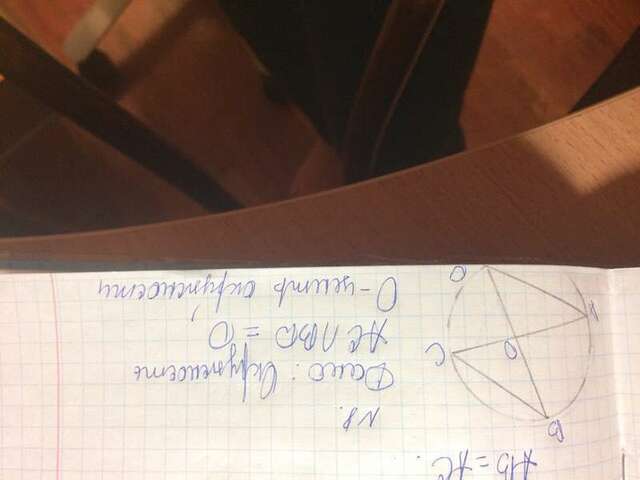 AB = AC.
N8.
Дано: Окружность
AC ∩ BD = O
O - центр окружности
B
C
O
A
D